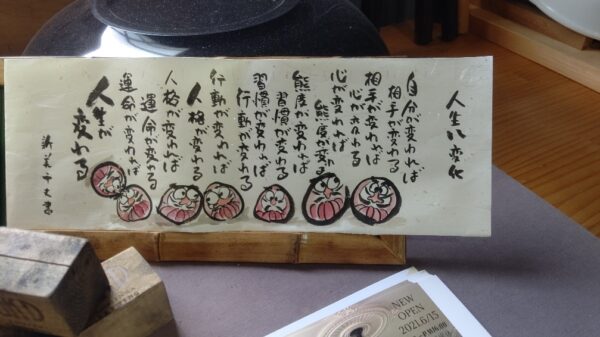 人生の変化
自分が変われば
相手が変わる
相手が変われば
心が変わる
心が変われば
態度が変わる
態度が変われば
習慣が変わる
習慣が変われば
行動が変わる
行動が変われば
人格が変わる
人格が変われば
運命が変わる
運命が変われば
人生が
変わる
NEW
OPEN
2021.6/15